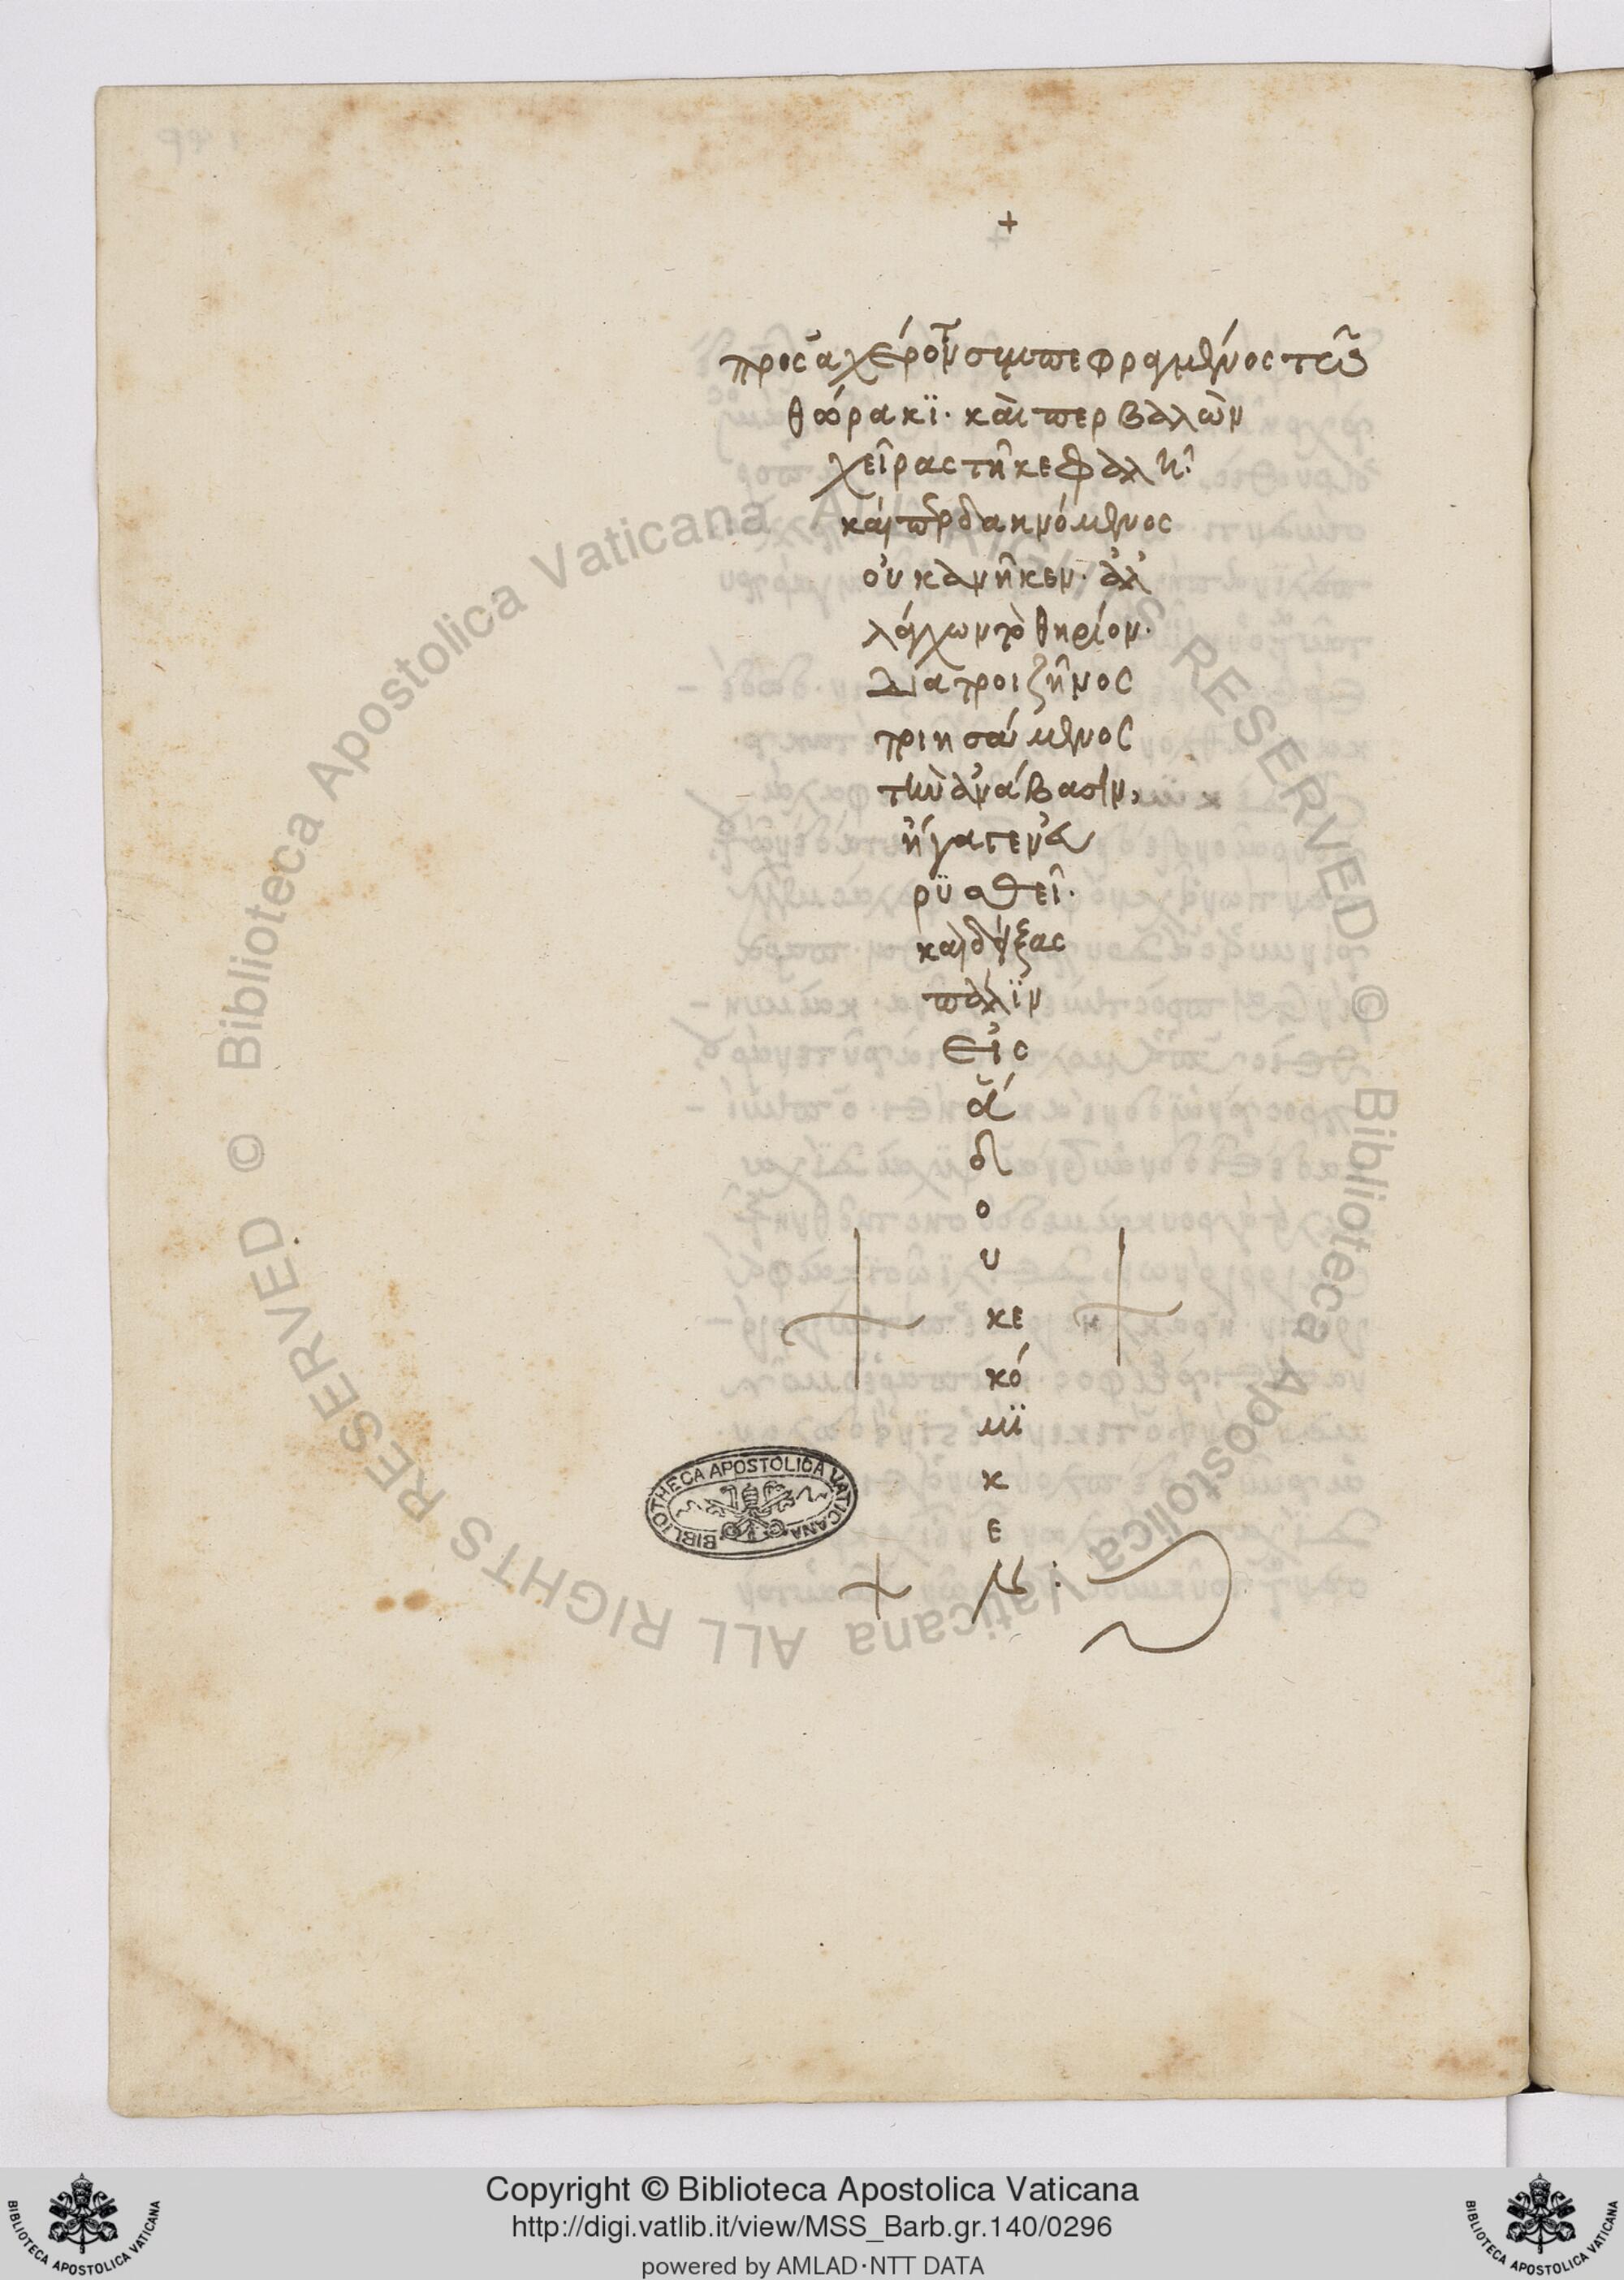 +
προς ἀχέροντι συμπεφραγμένος τῶ
θώρακϊ· καὶ περβαλὼν
χεῖρας τῆ κεφαλῆ·
καὶ περ δακνόμενος
οὐκ ἀνῆκεν· ἀλ
λάγχων τὸ θηρίον·
Διὰ τροιζῆνος
ποιησάμενος
τὴν ἀνάβασιν,
ἤγαγεν εὐ
ρϋσθεῖ·
καὶ δείξας
πάλϊν
εἰς
ἅ
δ
ο
υ
κε
κό
μϊ
κ
ε
ν:
BIBLIOTHECA APOSTOLICA VATICANA
Biblioteca Apostolica Vaticana ALL RIGHTS RESERVED ©
Biblioteca Apostolica Vaticana ALL RIGHTS RESERVED ©
Copyright © Biblioteca Apostolica Vaticana
http://digi.vatlib.it/view/MSS_Barb.gr.140/0296
powered by AMLAD·NTT DATA
BIBLIOTECA APOSTOLICA VATICANA
BIBLIOTECA APOSTOLICA VATICANA